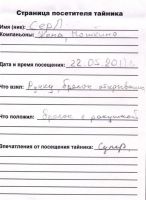 Страница посетителя тайника
Имя (ник): СерЛ
Компаньоны: Дана, Мошкина
Дата и время посещения: 22.05.2011г
Что взял: Ручку, брелок открывашка
Что положил: Брелок с ракушкой
Впечатления от посещения тайника: Супер